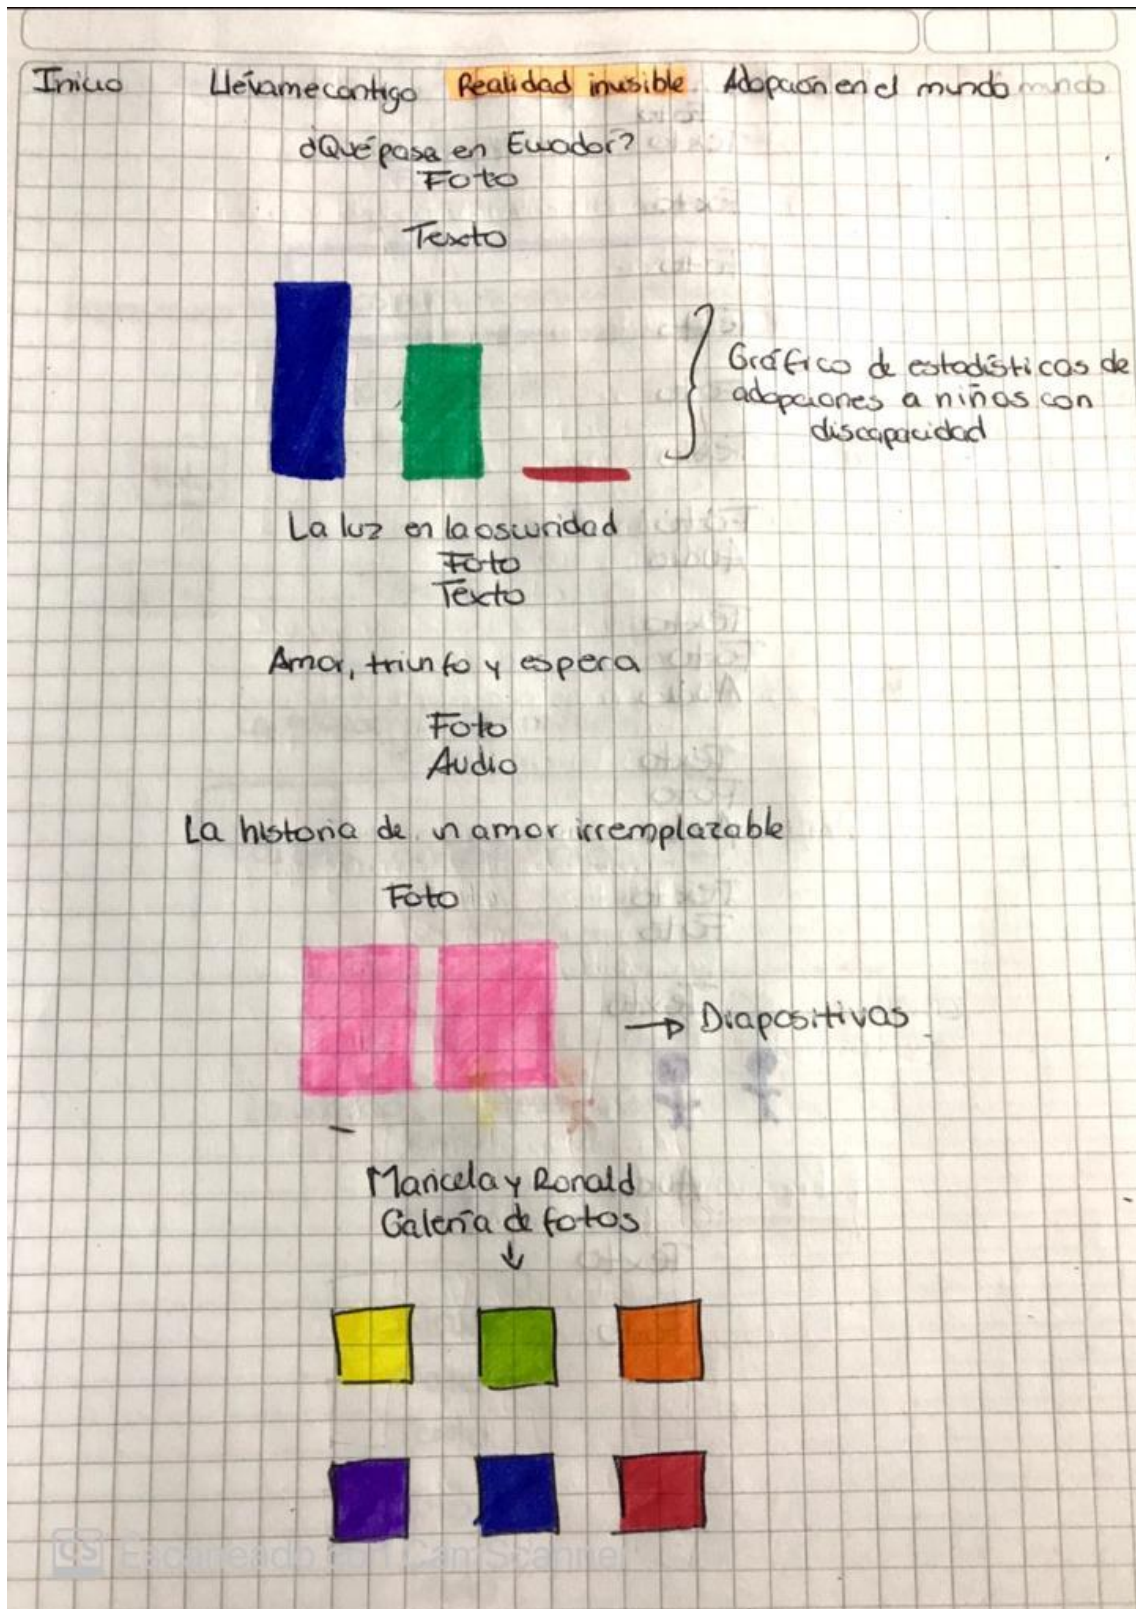 Inicio Llévame contigo Realidad invisible Adopción en el mundo mundo
¿Qué pasa en Ecuador?
Foto
Texto
Gráfico de estadísticas de
adopciones a niños con
discapacidad
La luz en la oscuridad
Foto
Texto
Amor, triunfo y espera
Foto
Audio
La historia de un amor irremplazable
Foto
→ Diapositivas
Maricela y Ronald
Galería de fotos
↓
CS Escaneado con CamScanner